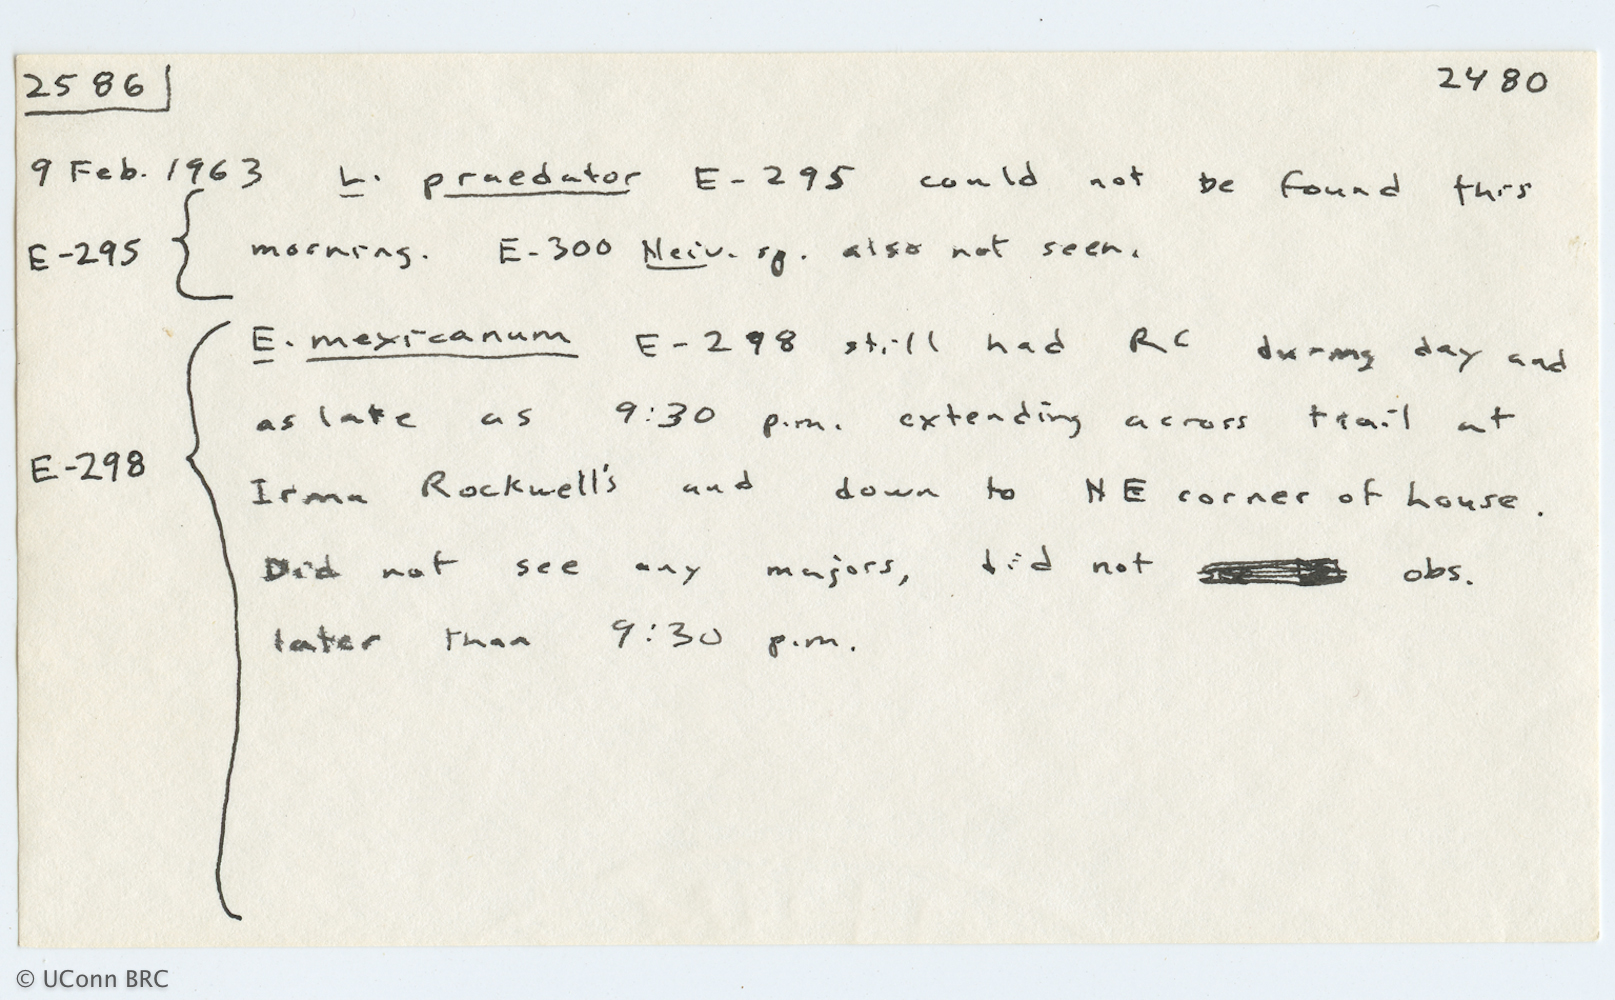 2586 2480
9 Feb. 1963 L. praedator E-295 could not be found this
E-295 morning. E-300 Neiv. sp. also not seen.
E. mexicanum E-298 still had RC during day and
as late as 9:30 p.m. extending across trail at
E-298 Irma Rockwell's and down to NE corner of house.
Did not see any majors, did not obs.
later than 9:30 p.m.
© UConn BRC